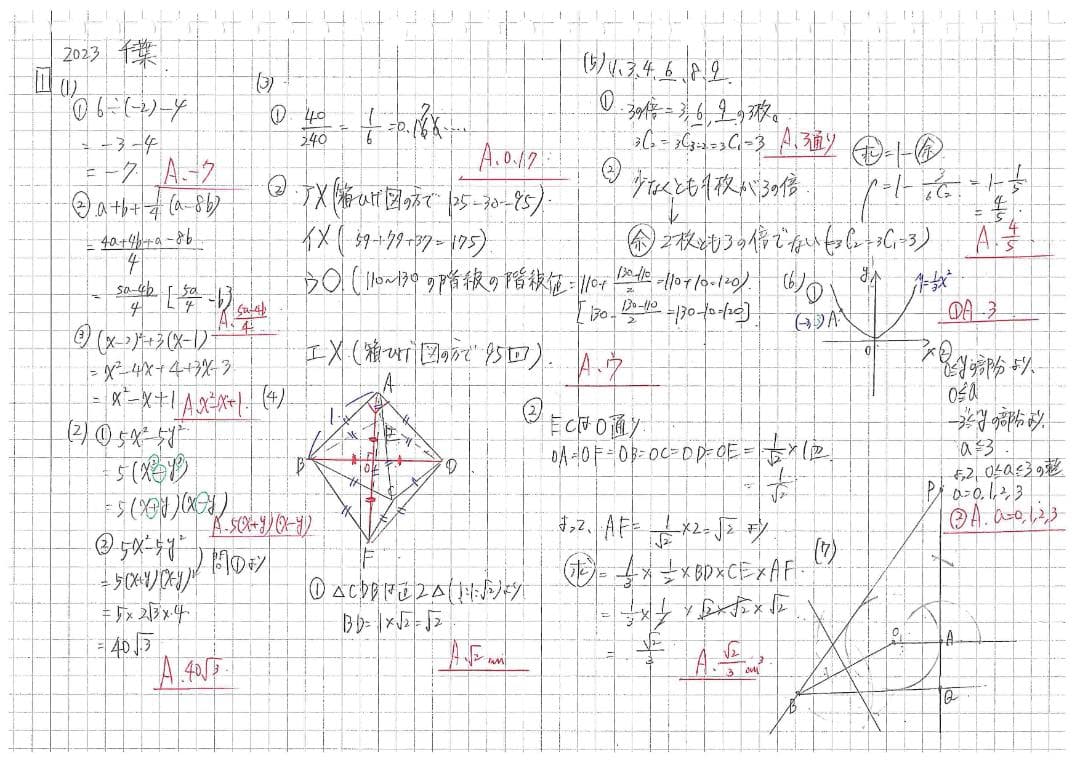 2023 千葉
1
(1)
① 6÷(-2)-4
= -3-4
= -7
A. -7
② a+b+1/4(a-8b)
= (4a+4b+a-8b)/4
= (5a-4b)/4 [5a/4 -b]
A. (5a-4b)/4
③ (x-2)²+3(x-1)
= x²-4x+4+3x-3
= x²-x+1
A. x²-x+1.
(2) ① 5x²-5y²
= 5(x²-y²)
= 5(x+y)(x-y)
A. 5(x+y)(x-y)
② 5x²-5y²
= 5(x+y)(x-y)
問①より
= 5×2√3×4
= 40√3
A. 40√3
(3)
① 40/240 = 1/6 = 0.166....
7
A. 0.17
② ア×(箱ひげ図の方で125-30=95).
イ×(59+79+37=175).
ウ○.(110~130の階級の階級値=110+(130-110)/2=110+10=120).
[130-(130-110)/2=130-10=120]
エ×.(箱ひげ図の方で95回).
A. ウ
(4)
A
1
B
O
D
C
E
F
① △CDBは正2△(1:1:√2)より
BD=1×√2=√2
A. √2 cm
②
ECはO通り
OA=OF=OB=OC=OD=OE=1/√2×1
= 1/√2
よって、AF=1/√2×2=√2より
求=1/3×1/2×BD×CE×AF.
= 1/3×1/2×√2×√2×√2
= √2/3
A. √2/3 cm³
(5) 1, 3, 4, 6, 8, 9
① 3の倍=3, 6, 9の3枚。
₃C₂=₃C₃₋₂=₃C₁=3
A. 3通り
② 少なくとも1枚が3の倍.
余 2枚とも3の倍でない(=₃C₂=₃C₁=3)
求=1-余
=1-3/₆C₂=1-1/5
=4/5
A. 4/5
(6) ①
y
y=1/3x²
A
(-3,3)
O
x
①A. 3
②
0≦yの部分より、
0≦a
-3≦yの部分より.
a≦3.
よって、0≦a≦3の整
a=0,1,2,3
②A. a=0,1,2,3
(7)
P
O
A
B
Q